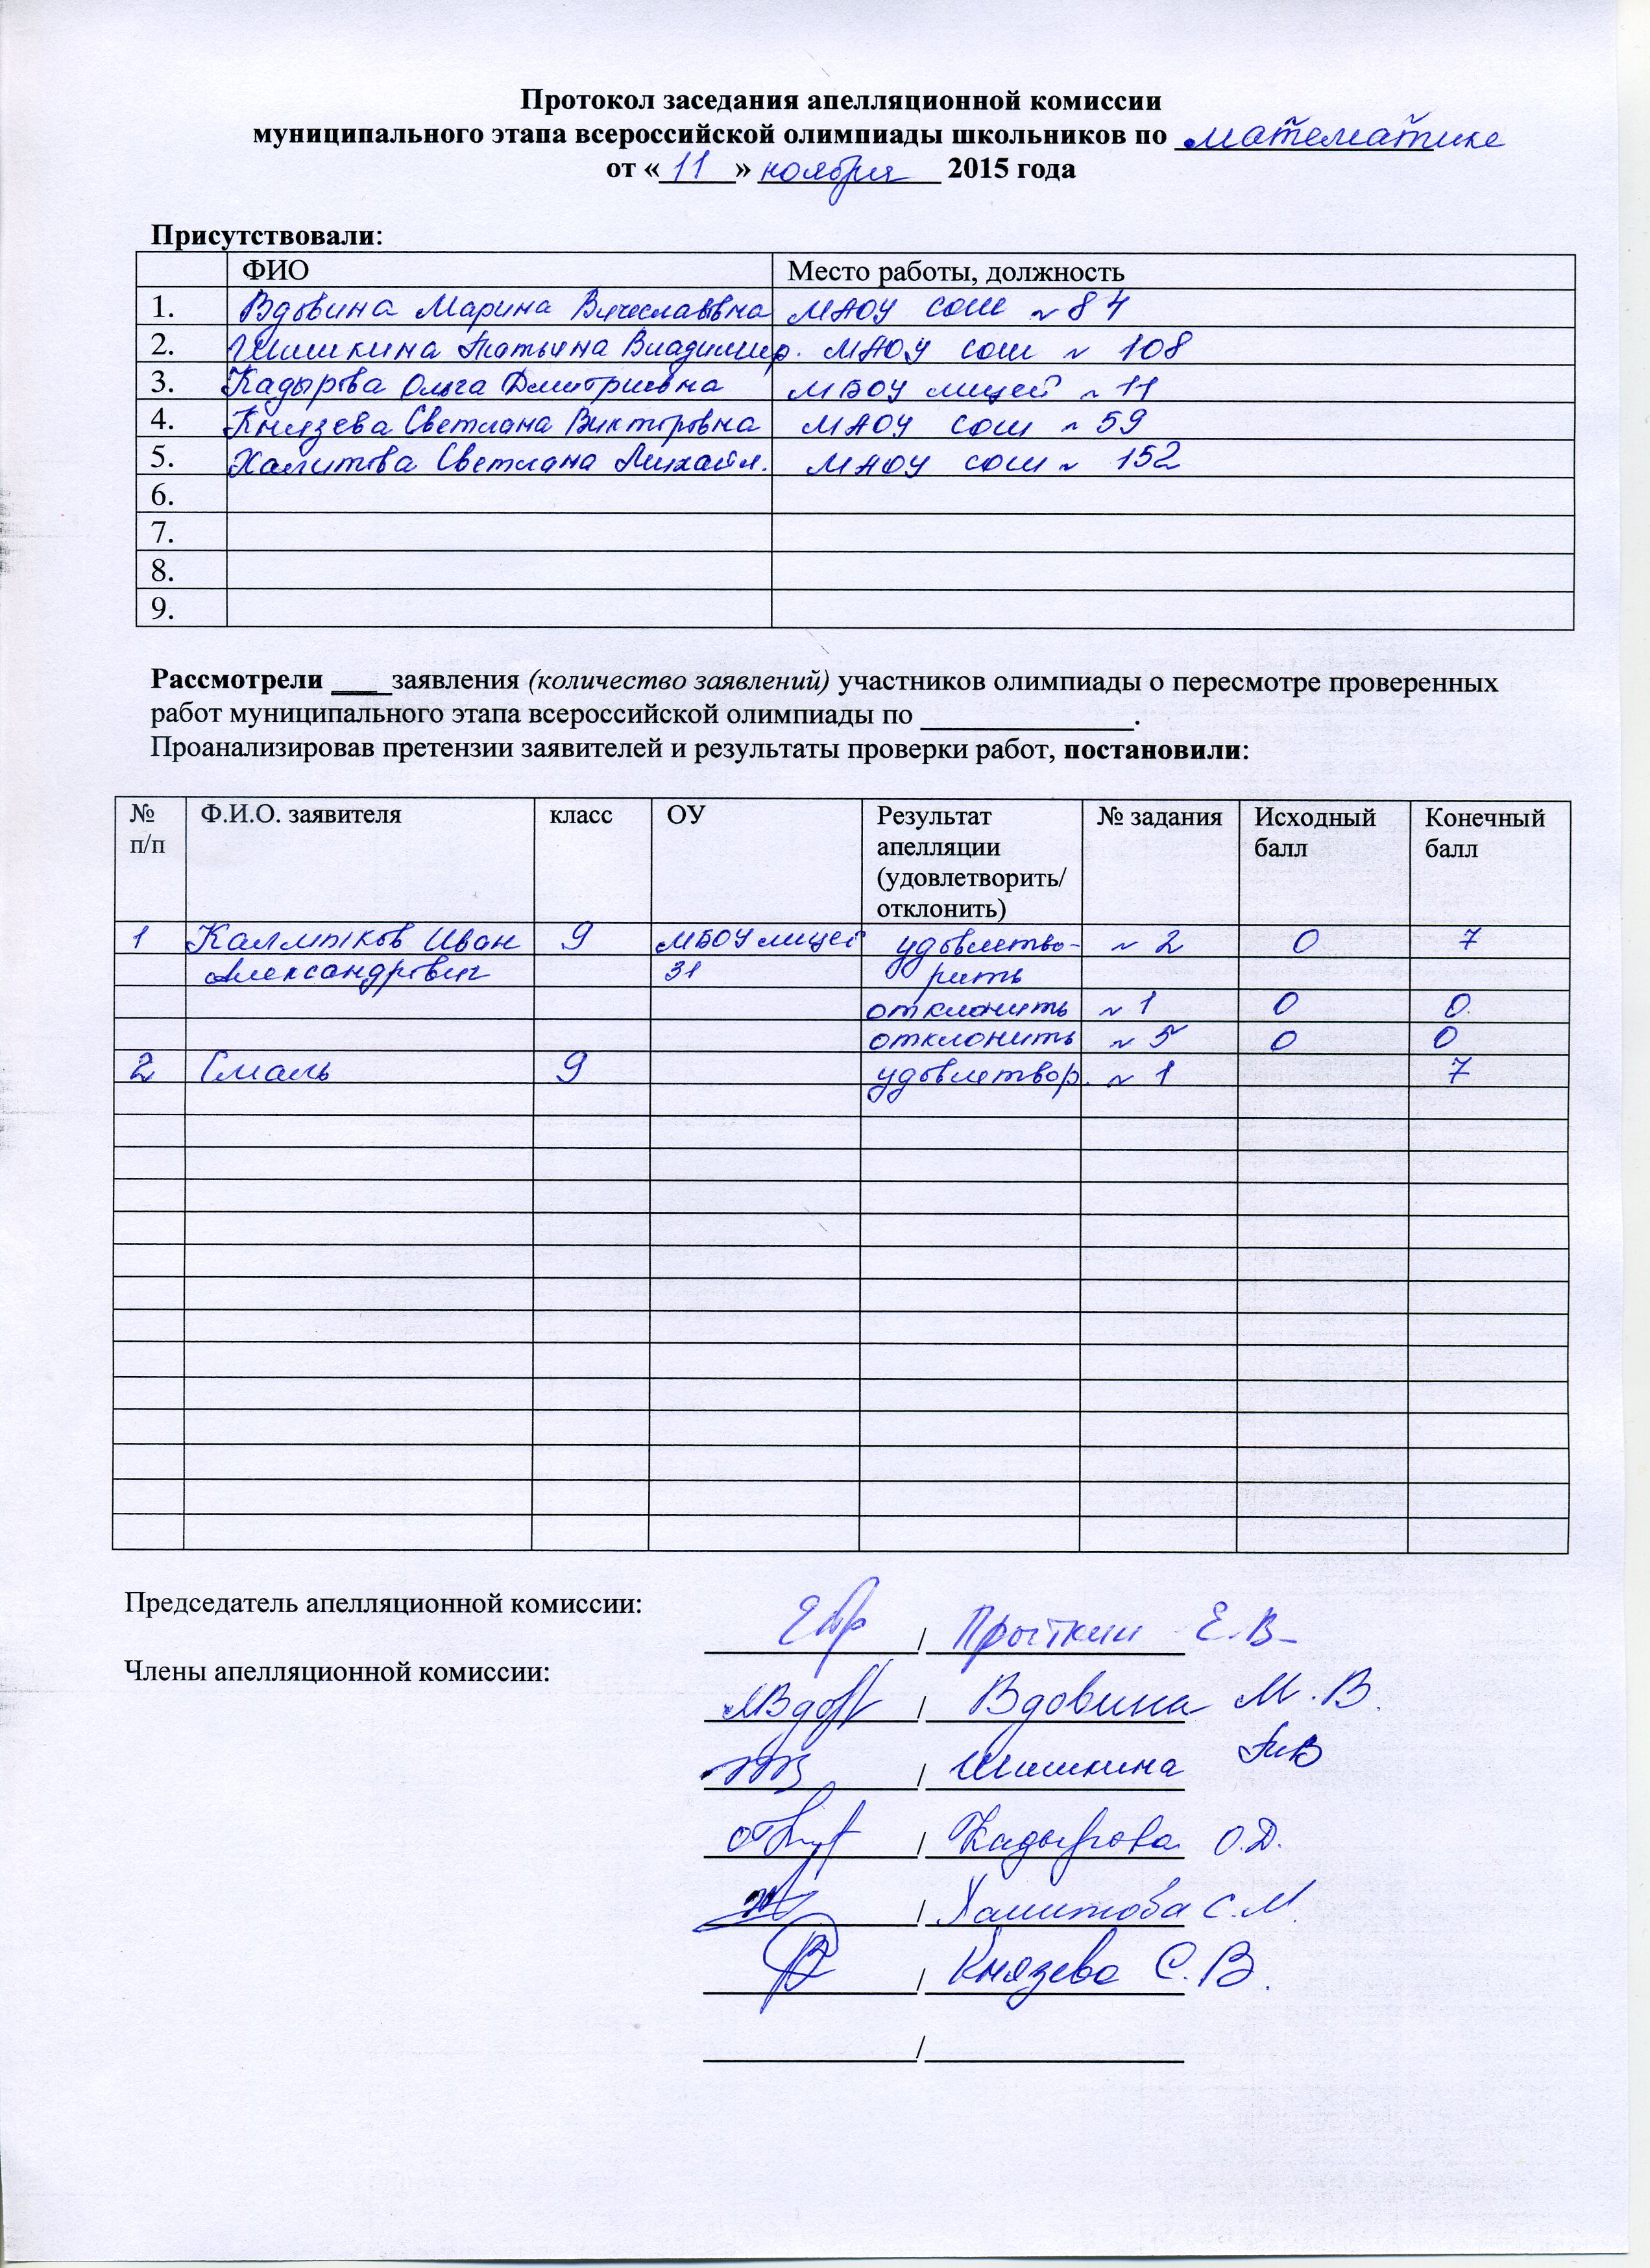 Протокол заседания апелляционной комиссии
муниципального этапа всероссийской олимпиады школьников по математике
от « 11 » ноября 2015 года
Присутствовали:
ФИО Место работы, должность
1. Вдовина Марина Вячеславовна МАОУ СОШ № 84
2. Шишкина Татьяна Владимир. МАОУ СОШ № 108
3. Кадырова Ольга Дмитриевна МБОУ лицей № 11
4. Князева Светлана Викторовна МАОУ СОШ № 59
5. Хамитова Светлана Михайл. МАОУ СОШ № 152
6.
7.
8.
9.
Рассмотрели ____заявления (количество заявлений) участников олимпиады о пересмотре проверенных
работ муниципального этапа всероссийской олимпиады по ______________.
Проанализировав претензии заявителей и результаты проверки работ, постановили:
№ п/п Ф.И.О. заявителя класс ОУ Результат апелляции (удовлетворить/ отклонить) № задания Исходный балл Конечный балл
1 Калмыков Иван 9 МБОУ лицей удовлетво- № 2 0 7
Александрович 31 рить
отклонить № 1 0 0
отклонить № 5 0 0
2 Смаль 9 удовлетвор. № 1 7
Председатель апелляционной комиссии:
/ Прыткин Е.В.
Члены апелляционной комиссии:
/ Вдовина М.В.
/ Шишкина Т.В.
/ Кадырова О.Д.
/ Хамитова С.М.
/ Князева С.В.
/